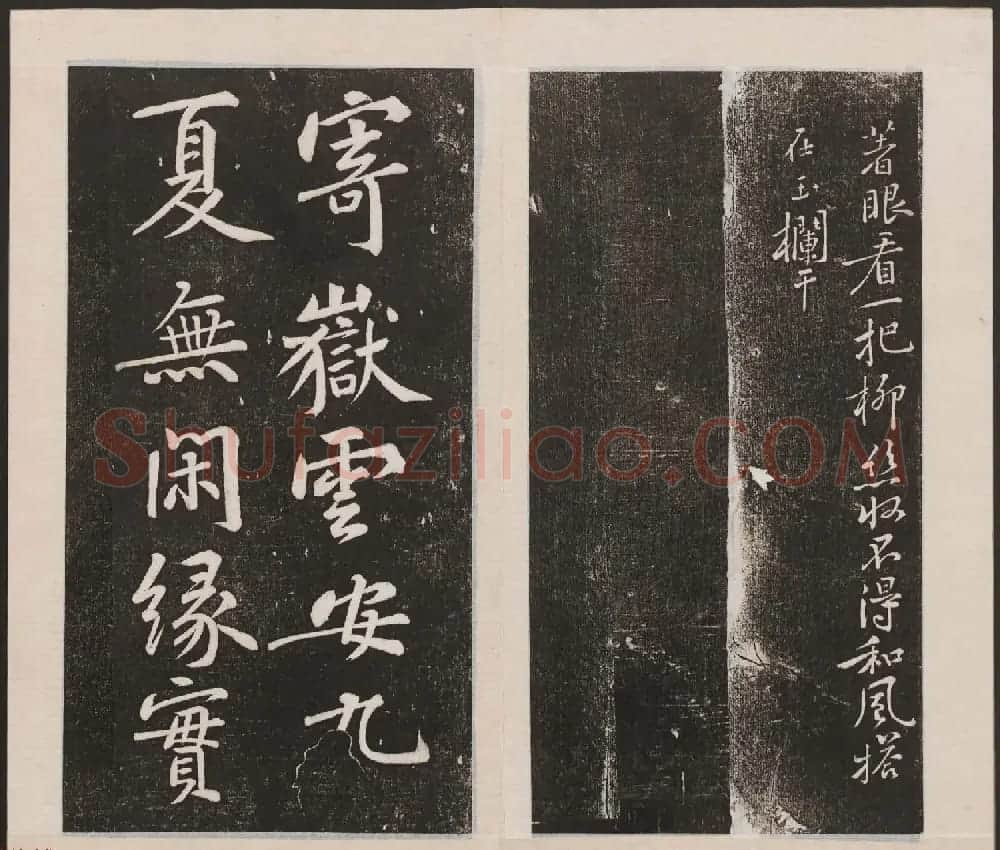 著眼看一把柳絲收不得和風搭
在玉欄干
寄嶽雲安九
夏無閑緣實
Shufaziliao.COM